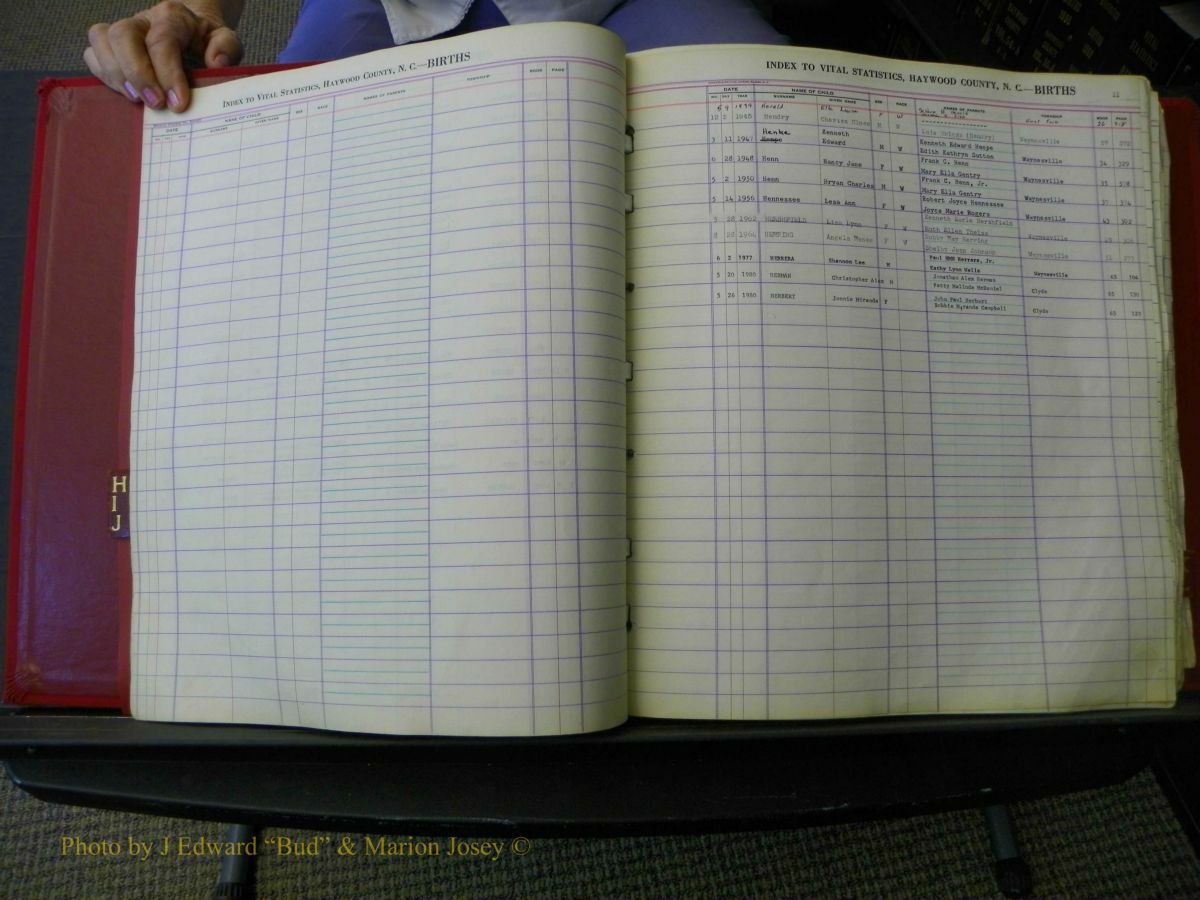 INDEX TO VITAL STATISTICS, HAYWOOD COUNTY, N. C.—BIRTHS
DATE NAME OF CHILD SEX RACE NAMES OF PARENTS TOWNSHIP BOOK PAGE
SURNAME GIVEN NAME
H
I
J
INDEX TO VITAL STATISTICS, HAYWOOD COUNTY, N. C.—BIRTHS
DATE NAME OF CHILD SEX RACE NAMES OF PARENTS TOWNSHIP BOOK PAGE
MO. DAY YEAR SURNAME GIVEN NAME
5 9 1939 F W East Fork 26
12 2 1945 Hendry Charles (Hendry) Waynesville
3 11 1947 Henke Kenneth Edward M W Kenneth Edward Henpe Waynesville
Edith Kathryn Sutton
6 28 1948 Henn Nancy Jane F W Frank C. Henn Waynesville 34 329
Mary Ella Gentry
5 2 1950 Henn Bryan Charles M W Frank C. Henn, Jr. Waynesville 35 578
Mary Ella Gentry
5 14 1956 Hennessee Lesa Ann F W Robert Joyce Hennessee Waynesville 37 374
Joyce Marie Rogers
5 28 1962 HERSHFIELD Lisa Lynn F W Kenneth Marie Hershfield Waynesville 43 302
Ruth Ellen Theiss
8 20 1964 HERRING Angela Renee F W Bobby May Herring Waynesville
Shelby Jean Johnson
6 2 1977 HERRERA Shannon Lee M Paul Herrera, Jr. Waynesville 63 104
Kathy Lynn Walls
5 20 1980 HERMAN Christopher Alex M Jonathan Alex Herman Clyde 65 130
Patty Malinda McDaniel
5 26 1980 HERBERT Jennie Miranda F John Paul Herbert Clyde 65 129
Bobbie Miranda Campbell
Photo by J Edward “Bud” & Marion Josey ©